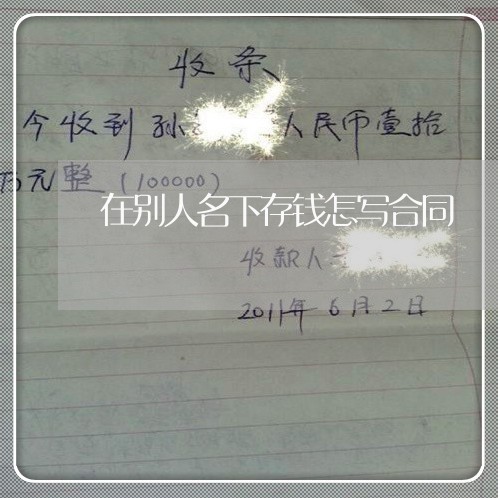 收条
今收到孙 人民币壹拾
万元整(100000)
在别人名下存钱怎写合同
收款人
2011年6月2日